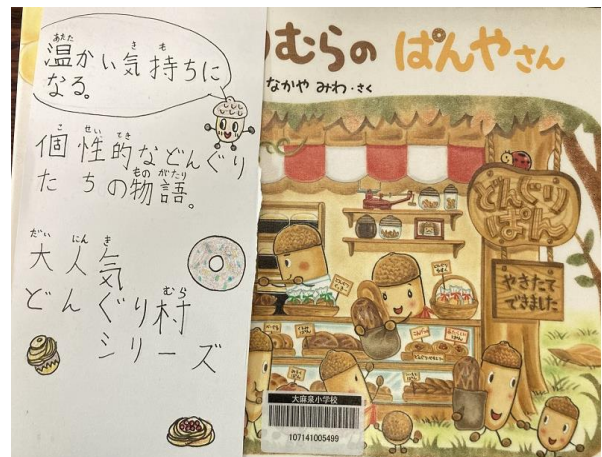 温かい気持ちに
なる。
個性的などんぐり
たちの物語。
大人気
どんぐり村
シリーズ
むらの ぱんやさん
なかや みわ・さく
どんぐり
ぱん
やきたて
できました
大麻泉小学校
107141005499